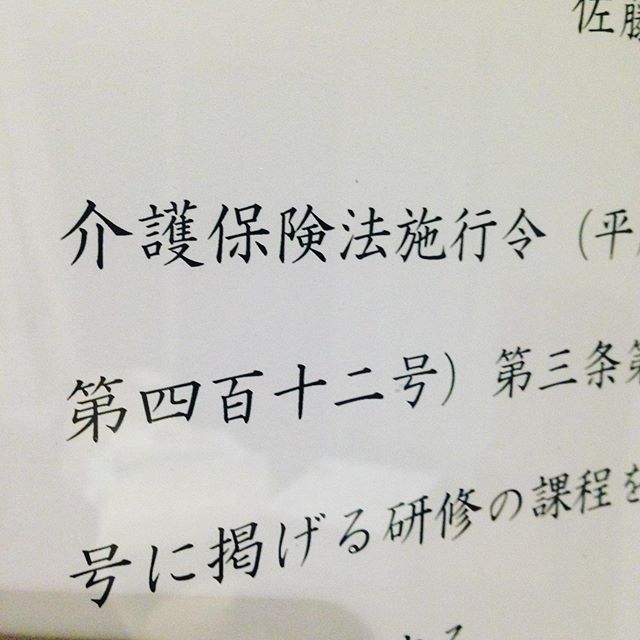 佐藤
介護保険法施行令（平
第四百十二号）第三条第
号に掲げる研修の課程を